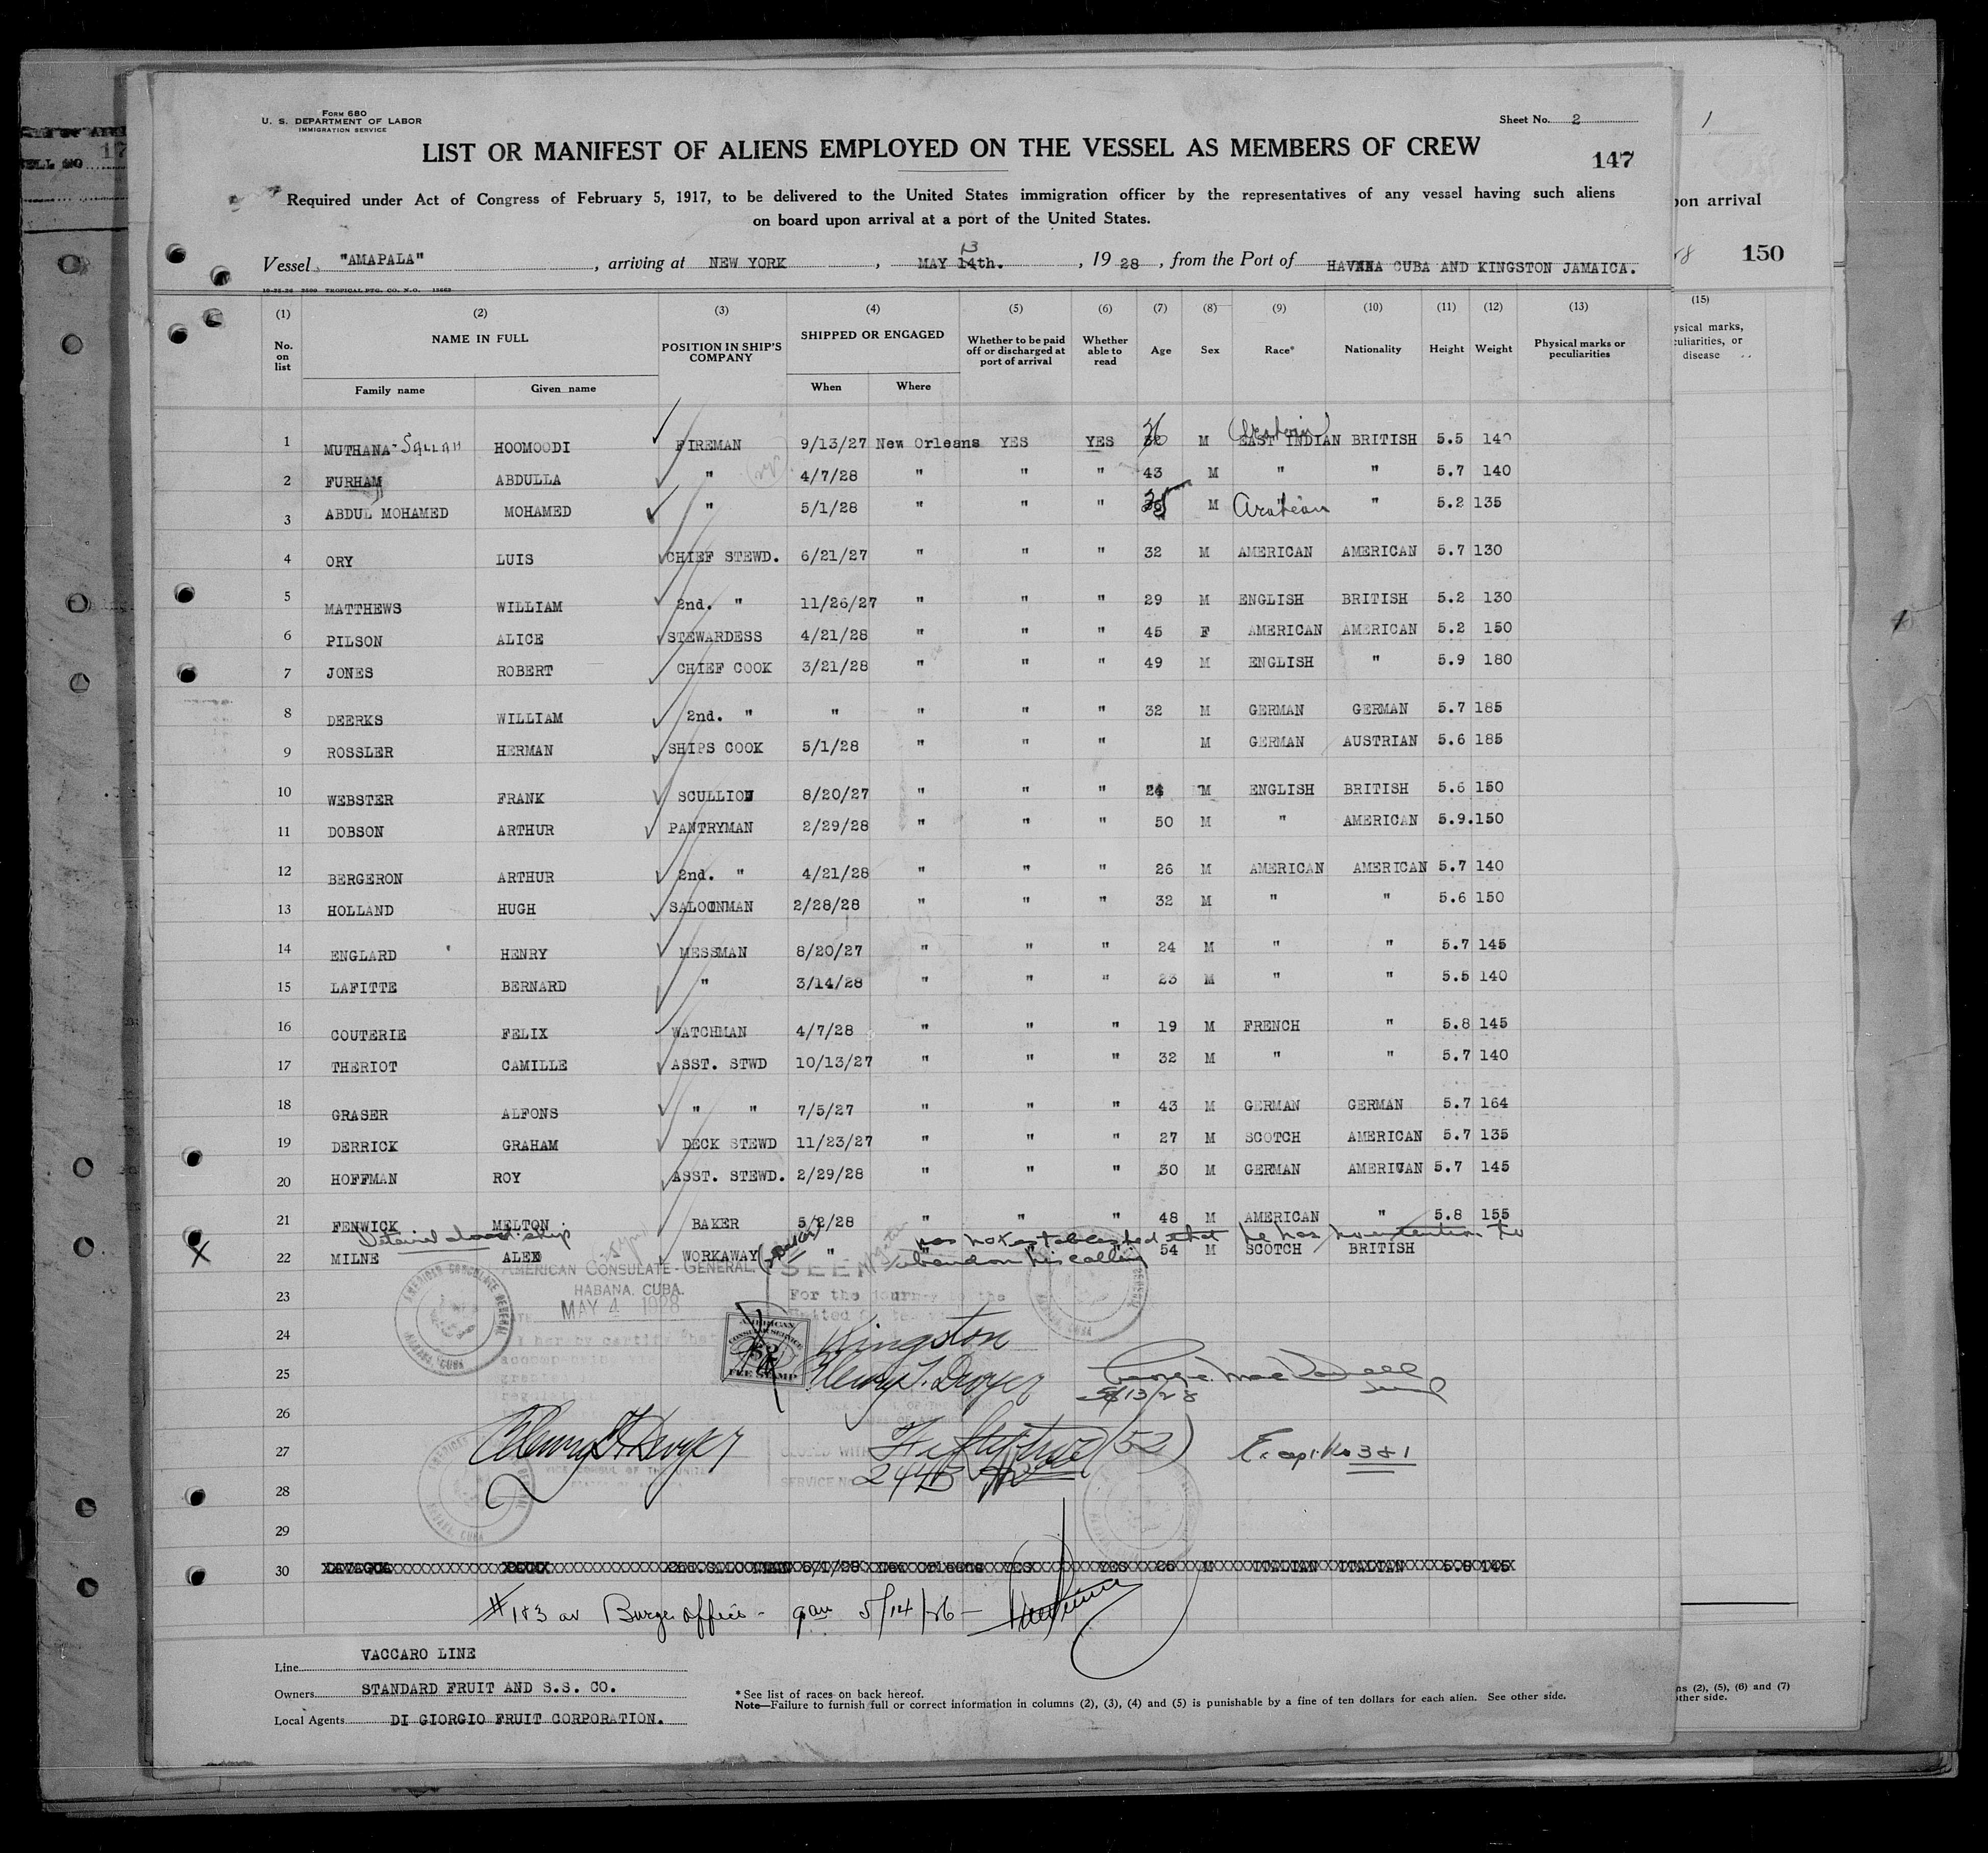 Form 680
U. S. DEPARTMENT OF LABOR
IMMIGRATION SERVICE
Sheet No. 2
LIST OR MANIFEST OF ALIENS EMPLOYED ON THE VESSEL AS MEMBERS OF CREW
147
Required under Act of Congress of February 5, 1917, to be delivered to the United States immigration officer by the representatives of any vessel having such aliens
on board upon arrival at a port of the United States.
13
Vessel "AMAPALA", arriving at NEW YORK, MAY 14th., 1928, from the Port of HAVANA CUBA AND KINGSTON JAMAICA.
(1) (2) (3) (4) (5) (6) (7) (8) (9) (10) (11) (12) (13)
No. on list NAME IN FULL POSITION IN SHIP'S COMPANY SHIPPED OR ENGAGED Whether to be paid off or discharged at port of arrival Whether able to read Age Sex Race* Nationality Height Weight Physical marks or peculiarities
Family name Given name When Where
1 MUTHANA-SALLAH HOOMOODI FIREMAN 9/13/27 New Orleans YES YES M EAST INDIAN BRITISH 5.5 140
2 FURHAM ABDULLA " 4/7/28 " " " 43 M " " 5.7 140
3 ABDUL MOHAMED MOHAMED " 5/1/28 " " " 35 M Arabian " 5.2 135
4 ORY LUIS CHIEF STEWD. 6/21/27 " " " 32 M AMERICAN AMERICAN 5.7 130
5 MATTHEWS WILLIAM 2nd. " 11/26/27 " " " 29 M ENGLISH BRITISH 5.2 130
6 PILSON ALICE STEWARDESS 4/21/28 " " " 45 F AMERICAN AMERICAN 5.2 150
7 JONES ROBERT CHIEF COOK 3/21/28 " " " 49 M ENGLISH " 5.9 180
8 DEERKS WILLIAM 2nd. " " " " " 32 M GERMAN GERMAN 5.7 185
9 ROSSLER HERMAN SHIPS COOK 5/1/28 " " " M GERMAN AUSTRIAN 5.6 185
10 WEBSTER FRANK SCULLION 8/20/27 " " " 24 M ENGLISH BRITISH 5.6 150
11 DOBSON ARTHUR PANTRYMAN 2/29/28 " " " 50 M " AMERICAN 5.9.150
12 BERGERON ARTHUR 2nd. " 4/21/28 " " " 26 M AMERICAN AMERICAN 5.7 140
13 HOLLAND HUGH SALOONMAN 2/28/28 " " " 32 M " " 5.6 150
14 ENGLARD HENRY MESSMAN 8/20/27 " " " 24 M " " 5.7 145
15 LAFITTE BERNARD " 3/14/28 " " " 23 M " " 5.5 140
16 COUTERIE FELIX WATCHMAN 4/7/28 " " " 19 M FRENCH " 5.8 145
17 THERIOT CAMILLE ASST. STWD 10/13/27 " " " 32 M " " 5.7 140
18 GRASER ALFONS " " 7/5/27 " " " 43 M GERMAN GERMAN 5.7 164
19 DERRICK GRAHAM DECK STEWD 11/23/27 " " " 27 M SCOTCH AMERICAN 5.7 135
20 HOFFMAN ROY ASST. STEWD. 2/29/28 " " " 30 M GERMAN AMERICAN 5.7 145
21 FENWICK MELTON BAKER 5/2/28 " " " 48 M AMERICAN " 5.8 155
Detained aboard ship has not established that he has no intention to
X 22 MILNE ALEX WORKAWAY " abandon his calling 54 M SCOTCH BRITISH
AMERICAN CONSULATE-GENERAL. SEEN
HABANA. CUBA. For the journey to the
23 MAY 4 1928 United States
24 Kingston
25 Henry T. Dwyer
5/13/28
26
27 Henry T. Dwyer Fifty two (52) 3 & 1
28
29
30
#183 Barge office - 9 am 5/14/
Line VACCARO LINE
Owners STANDARD FRUIT AND S.S. CO.
Local Agents DI GIORGIO FRUIT CORPORATION.
* See list of races on back hereof.
Note—Failure to furnish full or correct information in columns (2), (3), (4) and (5) is punishable by a fine of ten dollars for each alien. See other side.
1
pon arrival
150
(15)
ysical marks,
culiarities, or
disease
ns (2), (5), (6) and (7)
other side.